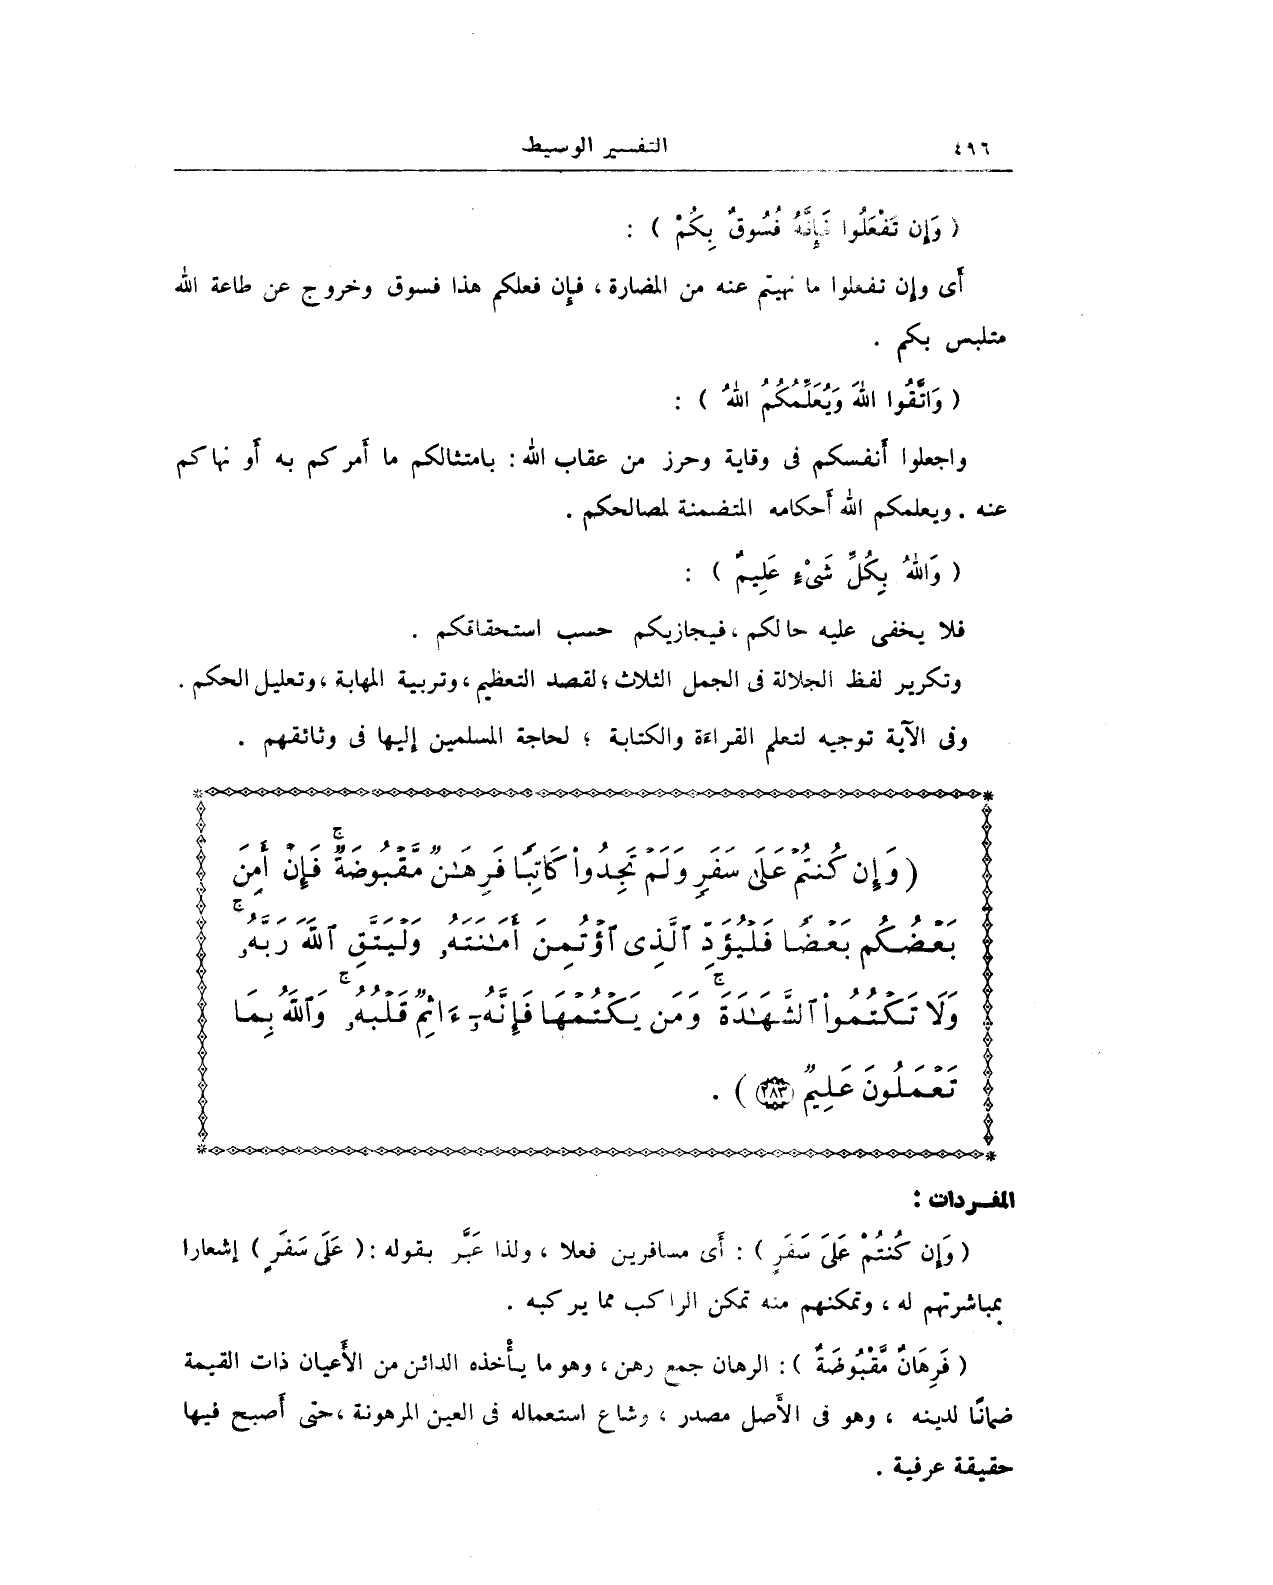 ٤٩٦ التفسير الوسيط
( وَإِن تَفْعَلُوا فَإِنَّهُ فُسُوقٌ بِكُمْ ) :
أى وإن تفعلوا ما نهيتم عنه من المضارة ، فإن فعلكم هذا فسوق وخروج عن طاعة الله
متلبس بكم .
( وَاتَّقُوا اللهَ وَيُعَلِّمُكُمُ اللهُ ) :
واجعلوا أنفسكم فى وقاية وحرز من عقاب الله : بامتثالكم ما أمركم به أو نهاكم
عنه . ويعلمكم الله أحكامه المتضمنة لمصالحكم .
( وَاللهُ بِكُلِّ شَىْءٍ عَلِيمٌ ) :
فلا يخفى عليه حالكم ، فيجازيكم حسب استحقاقكم .
وتكرير لفظ الجلالة فى الجمل الثلاث ؛ لقصد التعظيم ، وتربية المهابة ، وتعليل الحكم .
وفى الآية توجيه لتعلم القراءة والكتابة ؛ لحاجة المسلمين إليها فى وثائقهم .
( وَإِن كُنتُمْ عَلَىٰ سَفَرٍ وَلَمْ تَجِدُوا۟ كَاتِبًا فَرِهَـٰنٌ مَّقْبُوضَةٌ ۚ فَإِنْ أَمِنَ
بَعْضُكُم بَعْضًا فَلْيُؤَدِّ ٱلَّذِى ٱؤْتُمِنَ أَمَـٰنَتَهُۥ وَلْيَتَّقِ ٱللَّهَ رَبَّهُۥ ۚ
وَلَا تَكْتُمُوا۟ ٱلشَّهَـٰدَةَ ۚ وَمَن يَكْتُمْهَا فَإِنَّهُۥٓ ءَاثِمٌ قَلْبُهُۥ ۚ وَٱللَّهُ بِمَا
تَعْمَلُونَ عَلِيمٌ (٢٨٣) ) .
المفـردات :
( وَإِن كُنتُمْ عَلَىَ سَفَرٍ ) : أى مسافرين فعلا ، ولذا عَبَّر بقوله : ( عَلَىَ سَفَرٍ ) إشعارا
بمباشرتهم له ، وتمكنهم منه تمكن الراكب مما يركبه .
( فَرِهَانٌ مَّقْبُوضَةٌ ) : الرهان جمع رهن ، وهو ما يأْخذه الدائن من الأَعيان ذات القيمة
ضمانًا لدينه ، وهو فى الأَصل مصدر ، وشاع استعماله فى العين المرهونة ، حتى أصبح فيها
حقيقة عرفية .